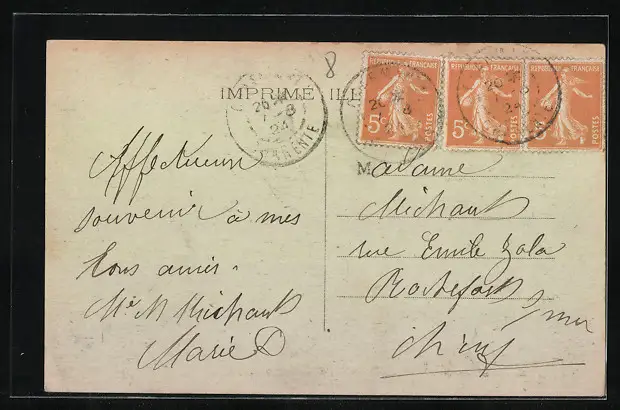 8
IMPRIMÉ ILL
20 8
24
CHARENTE
REPUBLIQUE FRANCAISE
5c
POSTES
REPUBLIQUE FRANCAISE
5c
POSTES
REPUBLIQUE FRANCAISE
POSTES
Affectueux
souvenir à mes
bons amis.
Marie D
Madame
Michaud
rue Emile Zola
Rochefort
s/mer